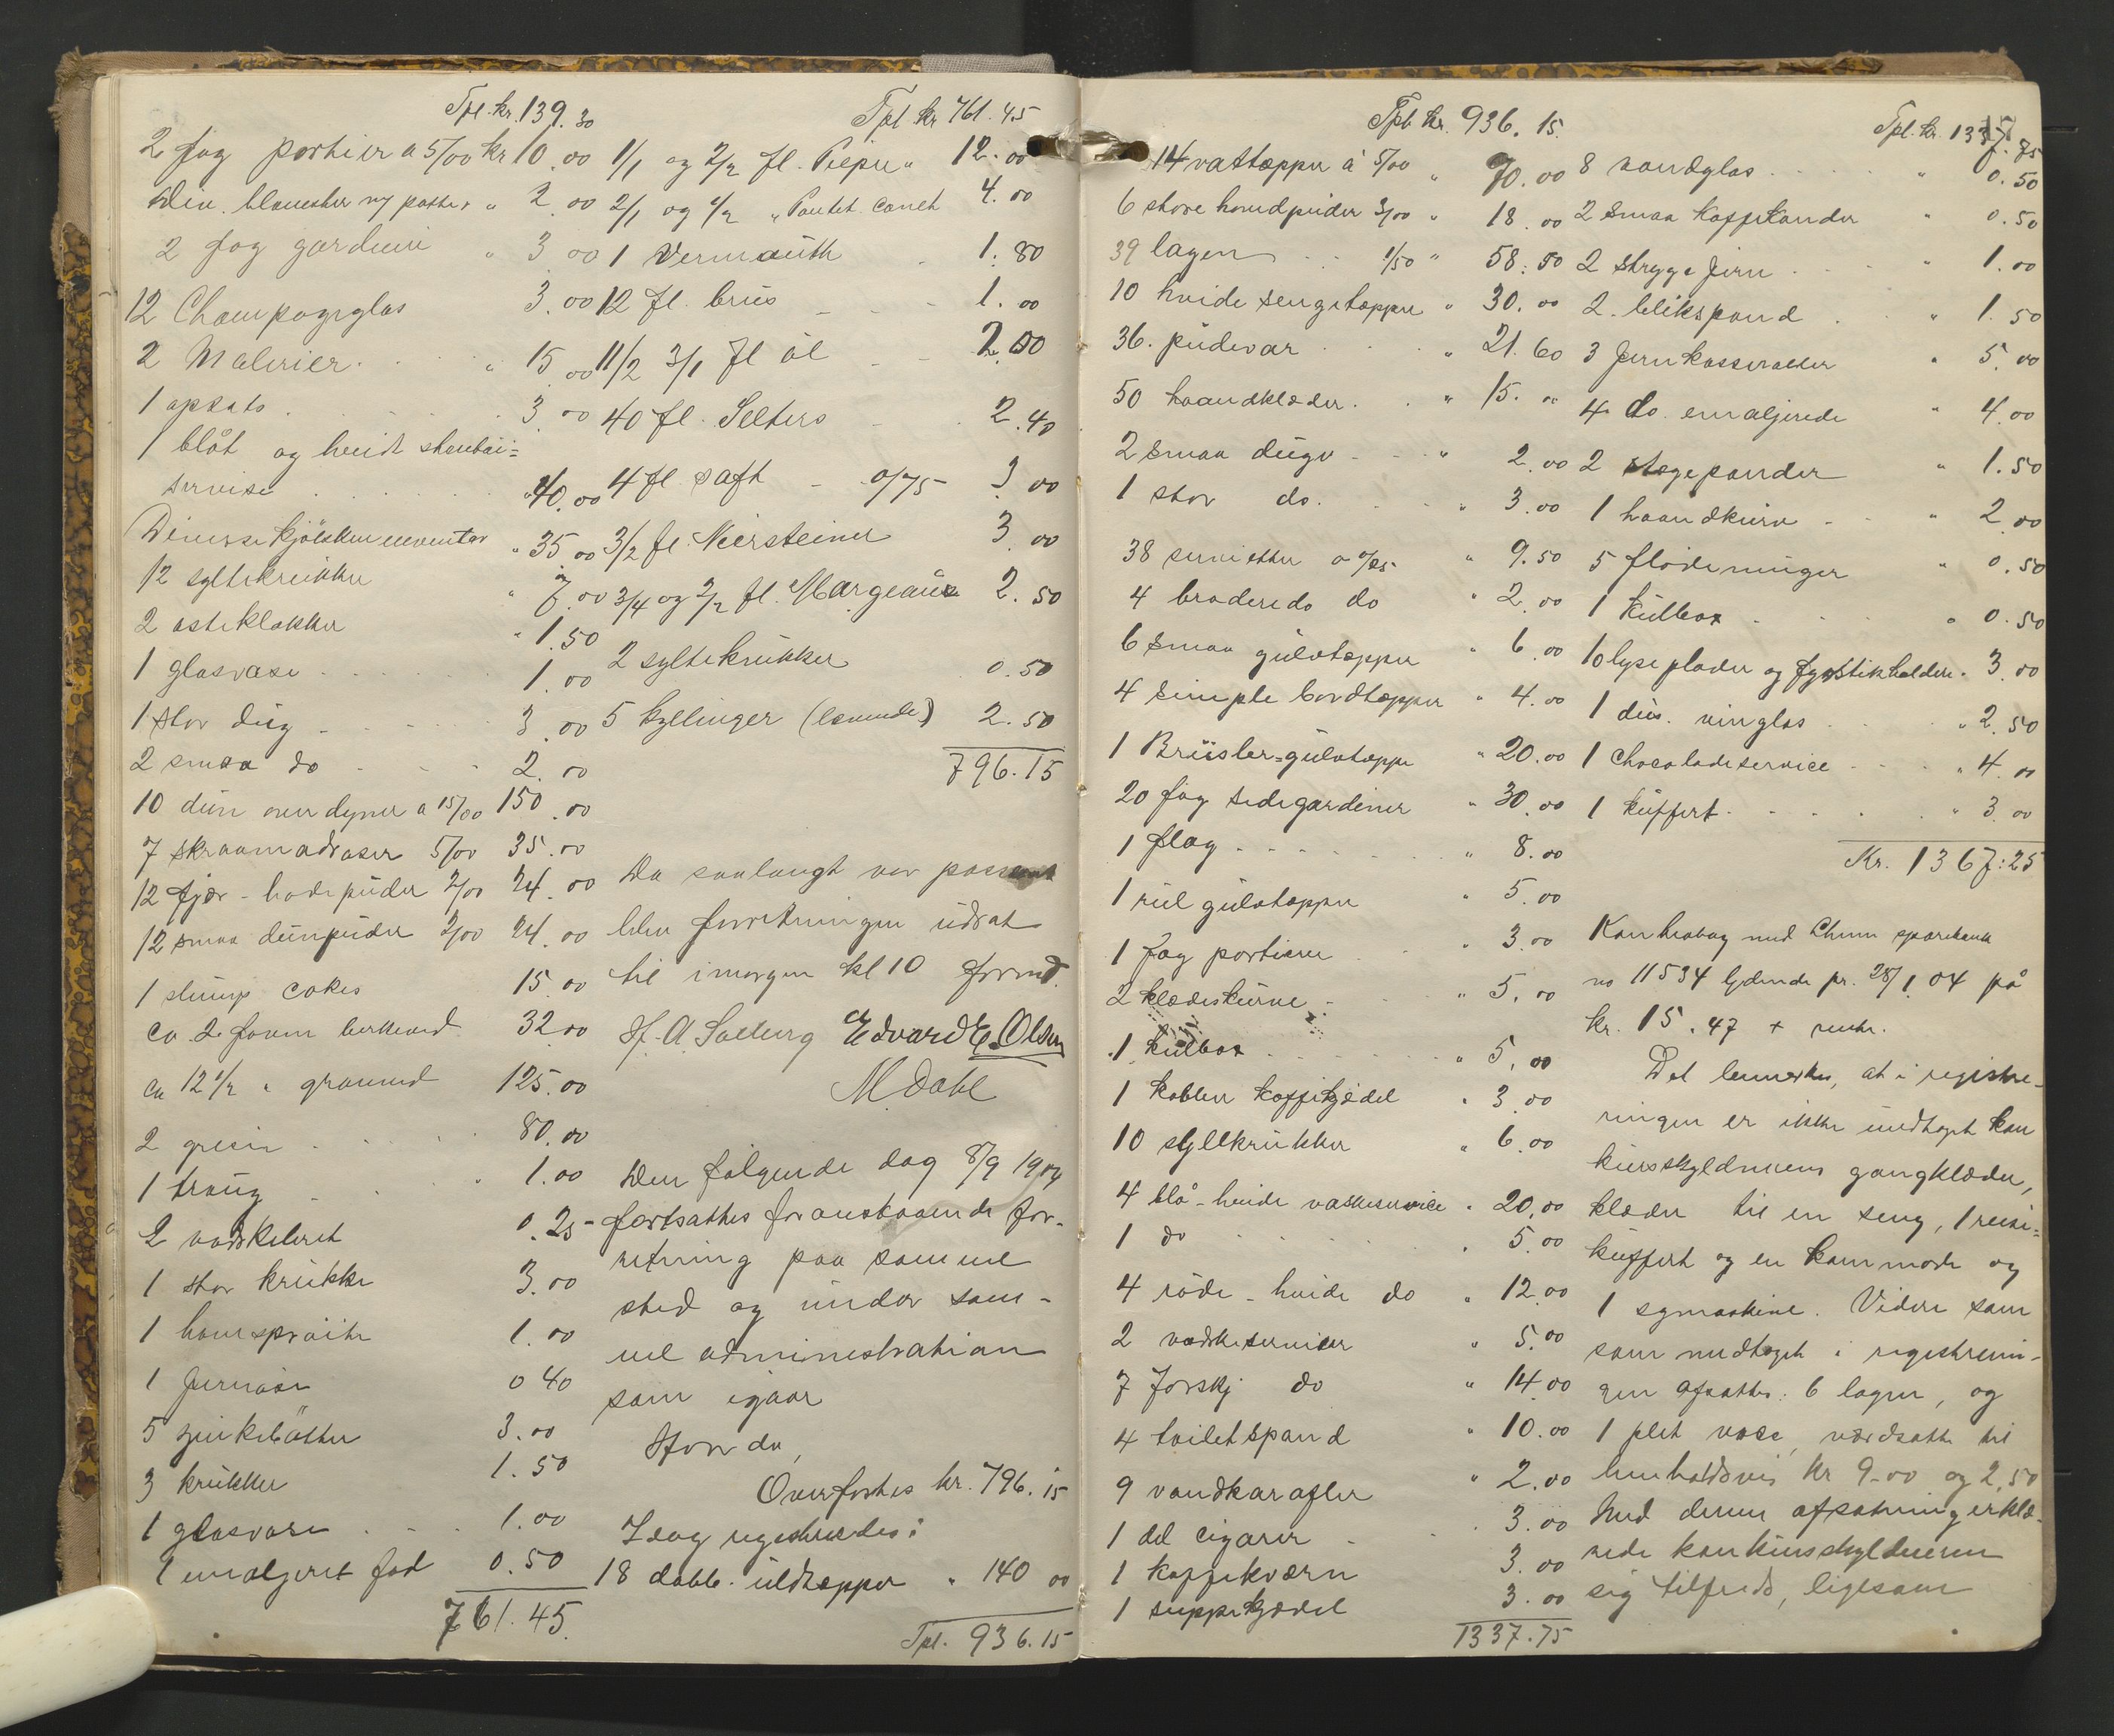 Tpt. kr. 139.30
2 fag portier a 5/00 kr 10.00
Div. blomster og potter " 2.00
2 fag gardiner " 3.00
12 Champagneglas 3.00
2 Malerier " 15.00
1 opsats 3.00
1 blåt og hvidt
servise " 40.00
Diverse kjökken inventar " 35.00
12 syltekrukker " 7.00
2 osteklokker " 1.50
1 glasvase 1.00
1 stor dug 3.00
2 smaa do 2.00
10 dun overdyner a 15/00 150.00
7 skraamadraser 5/00 35.00
12 fjær-hodepuder 2/00 24.00
12 smaa dunpuder 2/00 24.00
1 slump cokes 15.00
ca 2 favn birkeved 32.00
ca 12 1/2 " granved 125.00
2 griser 80.00
1 traug " 1.00
2 vaskebret 0.25
1 stor krukke 3.00
1 havesprøite 1.00
1 0.40
5 zinkbötter 3.00
3 krukker 1.50
1 glasvase 1.00
1 emaljeret fad 0.50
761.45
Tpt kr 761.45
1/1 og 2/2 fl. " 12.00
2/1 og 4/2 " Pontet Canet 4.00
1 Vermouth 1.80
12 fl. brus 1.00
11/2 3/1 fl öl 2.00
40 fl. Selters 2.40
4 fl saft 0/75 3.00
3/2 fl. Niersteiner 3.00
3/4 og 2/2 fl. Margeaux 2.50
2 syltekrukker 0.50
5 kyllinger (levende) 2.50
796.15
Da saalangt var passeret
blev forretningen udsat
til imorgen kl 10 formd.
H. A. Solberg Edvard E. Olsen
M. Dahl
Den følgende dag 8/9 1904
fortsattes foranstaaende for-
retning paa samme
sted og under sam-
me administration
som igaar
Hvorda,
Overfortes kr. 796.15
Idag registreredes:
18 dobb. uldtepper " 140.00
Tpt. 936.15
Tpt kr. 936.15.
14 vattepper á 5/00 " 70.00
6 store hovedpuder 3/00 " 18.00
39 lagen 1/50 " 58.50
10 hvide sengetepper " 30.00
36 pudevar " 21.60
50 haandklæder " 15. "
2 smaa duge " 2.00
1 stor do. " 3.00
38 servietter a 0/25 " 9.50
4 broderede do " 2.00
6 smaa gulvtepper " 6.00
4 simple bordtepper " 4.00
1 Brüsler-gulvteppe " 20.00
20 fag sidegardiner " 30.00
1 flag " 8.00
1 rul gulvtepper " 5.00
1 fag portierer " 3.00
2 klædeskurve " 5.00
1 kulbox " 5.00
1 kobber kaffekjedel " 3.00
10 syltkrukker " 6.00
4 blå-hvide vaskeservice " 20.00
1 do " 5.00
4 röde-hvide do " 12.00
2 vaskeserviser " 5.00
7 forskj do " 14.00
4 toiletspand " 10.00
9 vandkarafler " 2.00
1 del cigarer 3.00
1 kaffekværn 3.00
1 suppekjedel 3.00
1337.75
Tpt. kr. 1337.75
8 vandglas " 0.50
2 smaa kaffekander " 0.50
2 strygejern " 1.00
2 blikspand " 1.50
3 jernkasseroller " 5.00
4 do. emaljerede " 4.00
2 stegepander " 1.50
1 haandkurv " 2.00
5 flödemugger " 0.50
1 kulbox " 0.50
10 lyseplader og fyrstikholdere " 3.00
1 dus. vinglas " 2.50
1 Chocoladeservice " 4.00
1 kuffert " 3.00
Kr. 1367:25
Kontrabog med Chrnia sparebank
no 11534 lydende pr. 28/1 04 på
kr. 15.47 + renter.
Det bemerkes, at i registre-
ringen er ikke medtaget kon
kursskyldnerens gangklæder,
klæder til en seng, 1 reise-
kuffert og en kommode og
1 symaskine. Videre som
som medtaget i registrerin-
gen afsattes: 6 lagen, og
1 plet vase, værdsatte til
henholdsvis kr 9.00 og 2,50
Med denne afsætning erklæ-
rede konkursskyldneren
sig tilfreds, ligesom